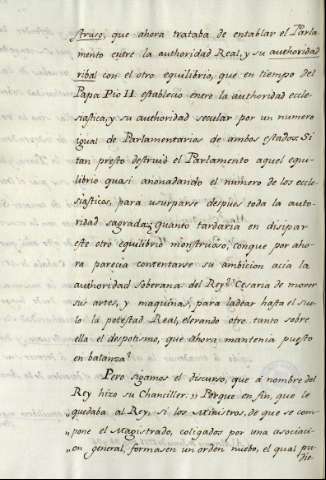 struo, que ahora trataba de entablar el Parla-
mento entre la authoridad Real, y su authoridad
ribal con el otro equilibrio, que en tiempo del
Papa Pio II establecio entre la authoridad ecle-
siastica, y su authoridad secular por un numero
igual de Parlamentarios de ambos estados. Si
tan presto destruió el Parlamento aquel equi-
librio quasi anonadando el numero de los ecle-
siasticos, para usurparse despues toda la auto-
ridad sagrada; quanto tardaria en disipar
este otro equilibrio monstruoso, conque por aho-
ra parecia contentarse su ambicion acia la
authoridad Soberana del Rey? Cesaria de mover
sus artes, y maquinas, para ladear hasta el sue-
lo la potestad Real, elevando otro tanto sobre
ella el despotismo, que ahora mantenia puesto
en balanza?
Pero sigamos el discurso, que á nombre del
Rey hizo su Chanciller: " Porque en fin, que le
" quedaba al Rey, si los Ministros, de que se com-
" pone el Magistrado, coligados por una asociaci-
" on general, formasen un orden nuebo, el qual pu-
die-